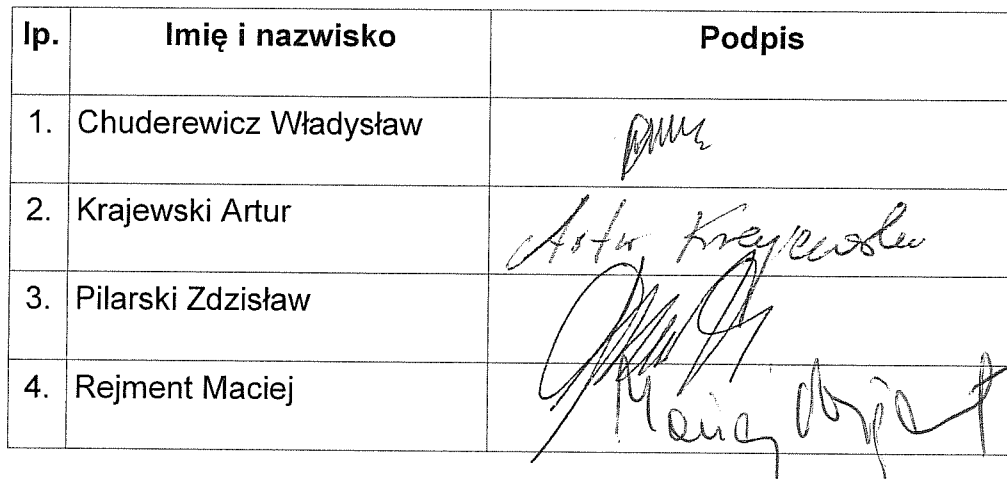 lp. Imię i nazwisko Podpis
1. Chuderewicz Władysław
2. Krajewski Artur Artur Krajewski
3. Pilarski Zdzisław
4. Rejment Maciej Maciej Rejment